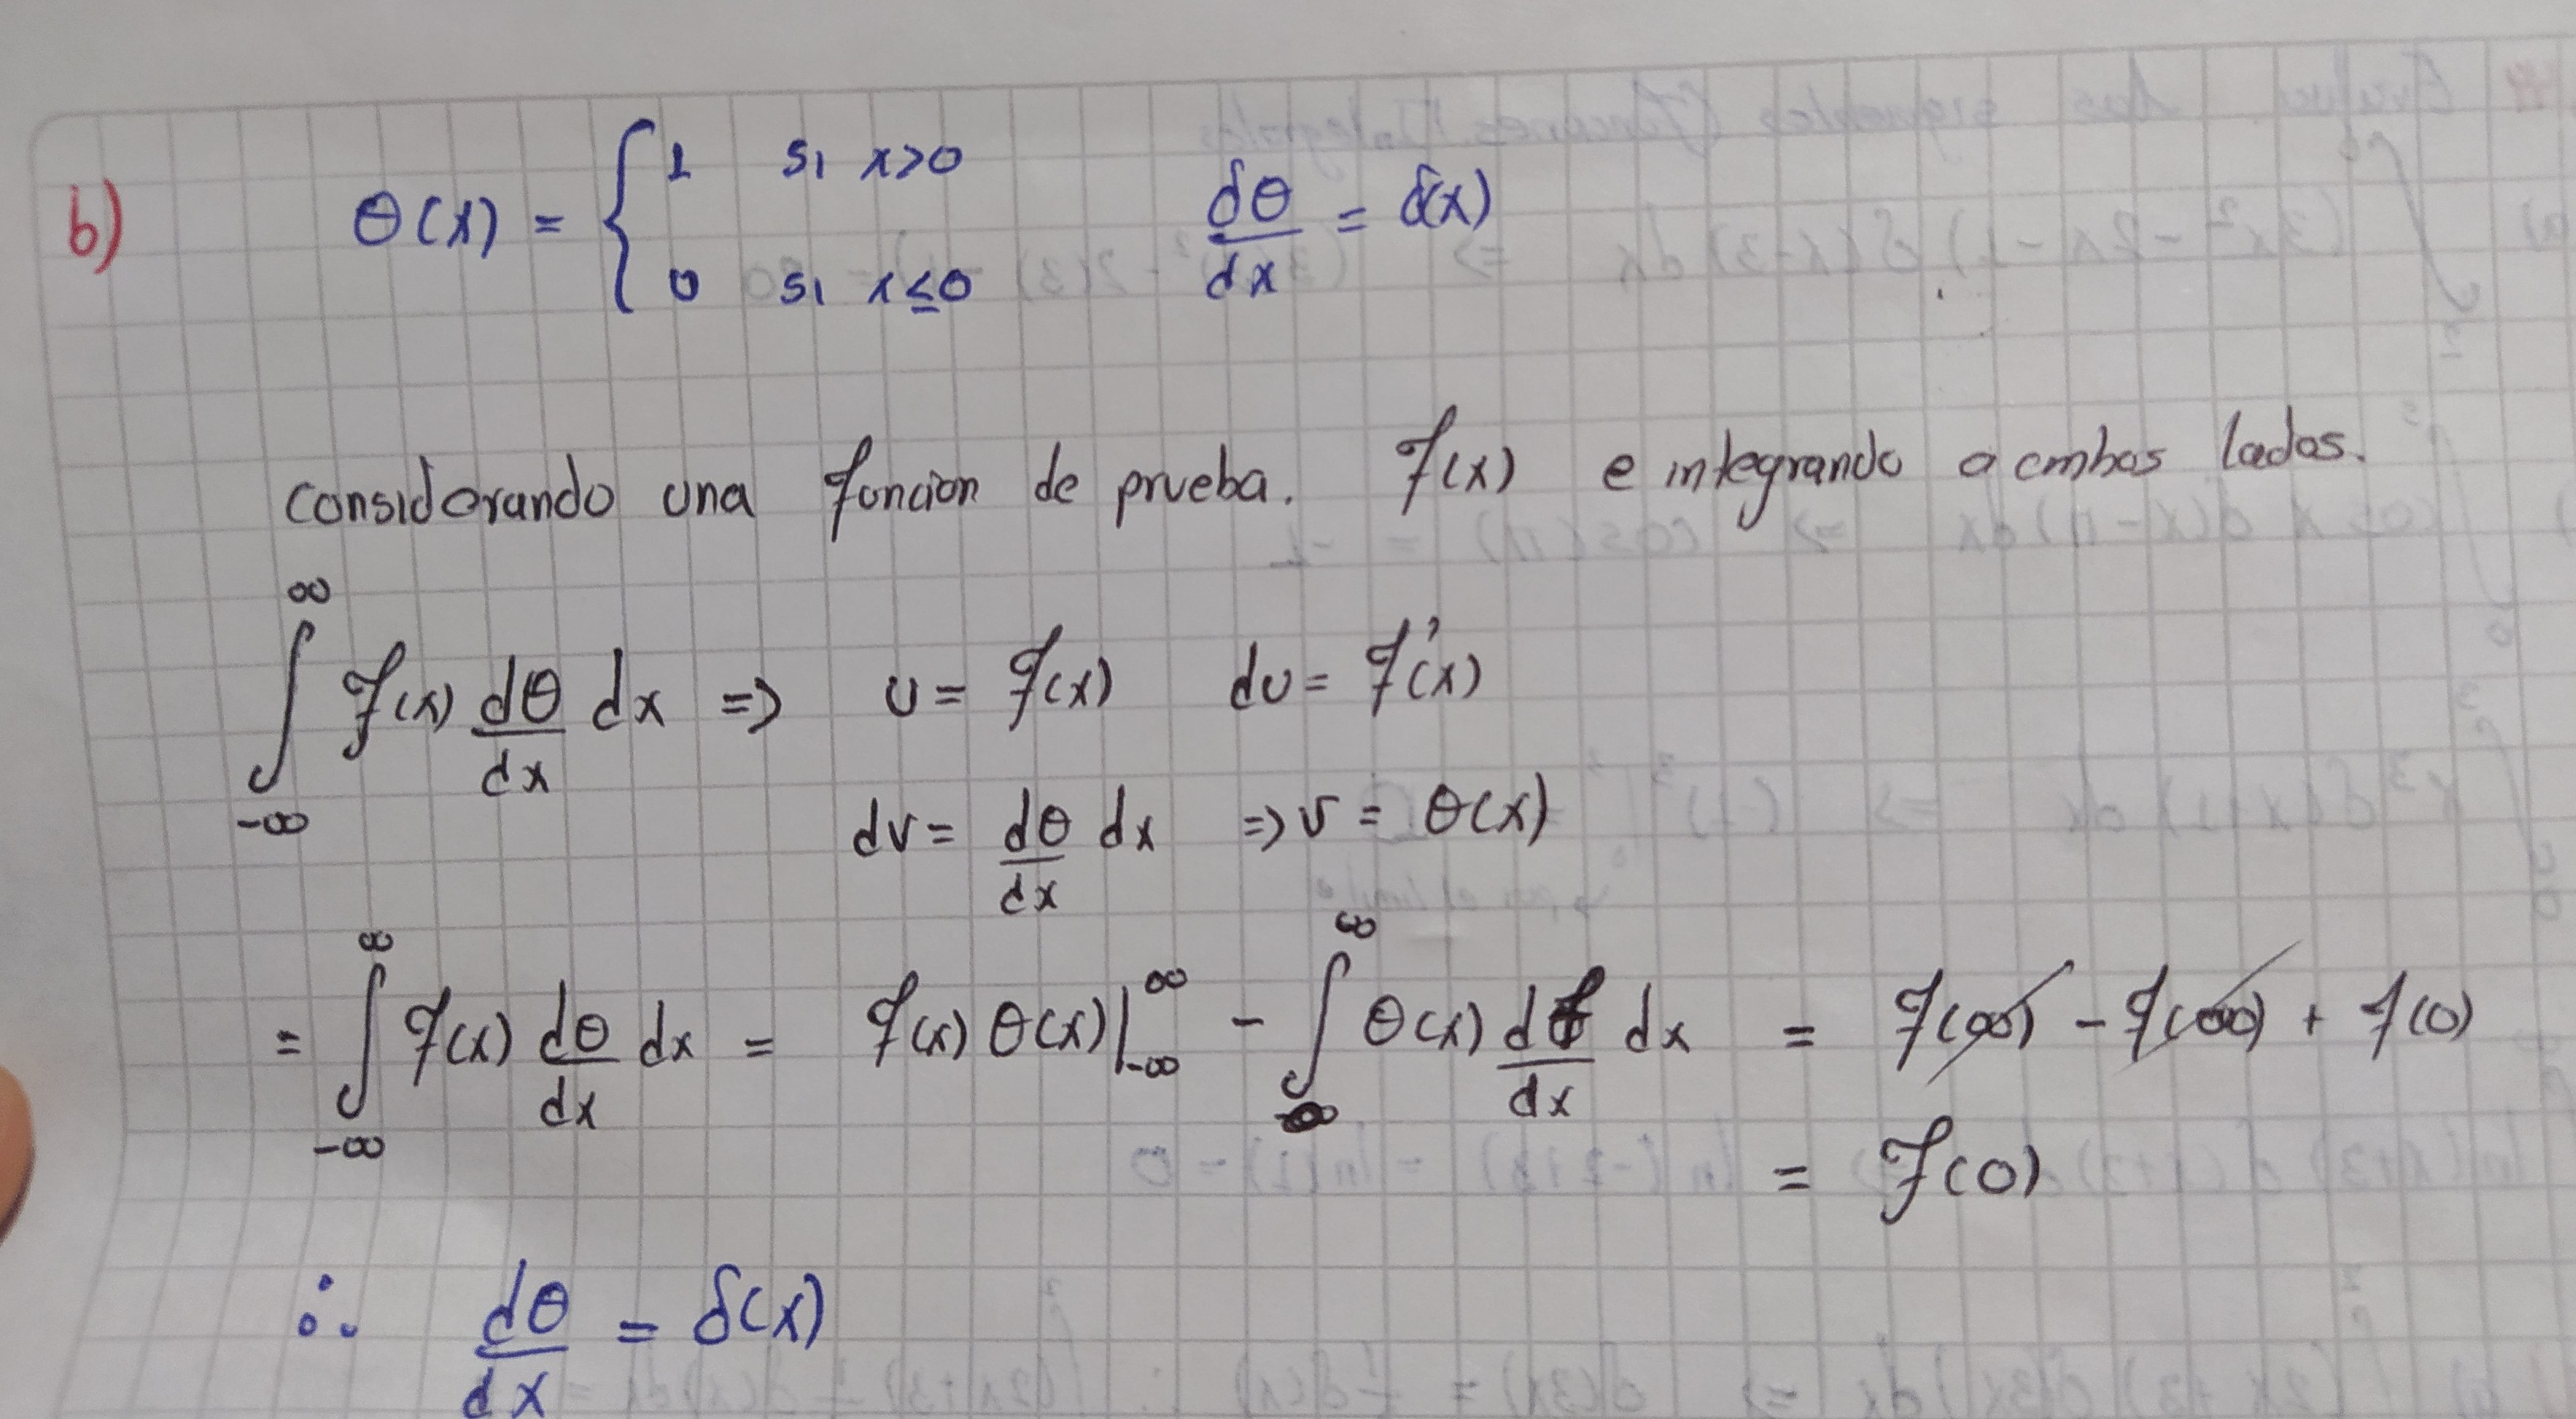 b) θ(x) = { 1 si x>0
0 si x≤0 dθ/dx = δ(x)
Considerando una funcion de prueba. f(x) e integrando a ambos lados.
∫_{-∞}^{∞} f(x) dθ/dx dx => u = f(x) du = f'(x)
dv = dθ/dx dx => v = θ(x)
= ∫_{-∞}^{∞} f(x) dθ/dx dx = f(x) θ(x)|_{-∞}^{∞} - ∫_{-∞}^{∞} θ(x) df/dx dx = f(∞) - f(∞) + f(0)
= f(0)
∴ dθ/dx = δ(x)